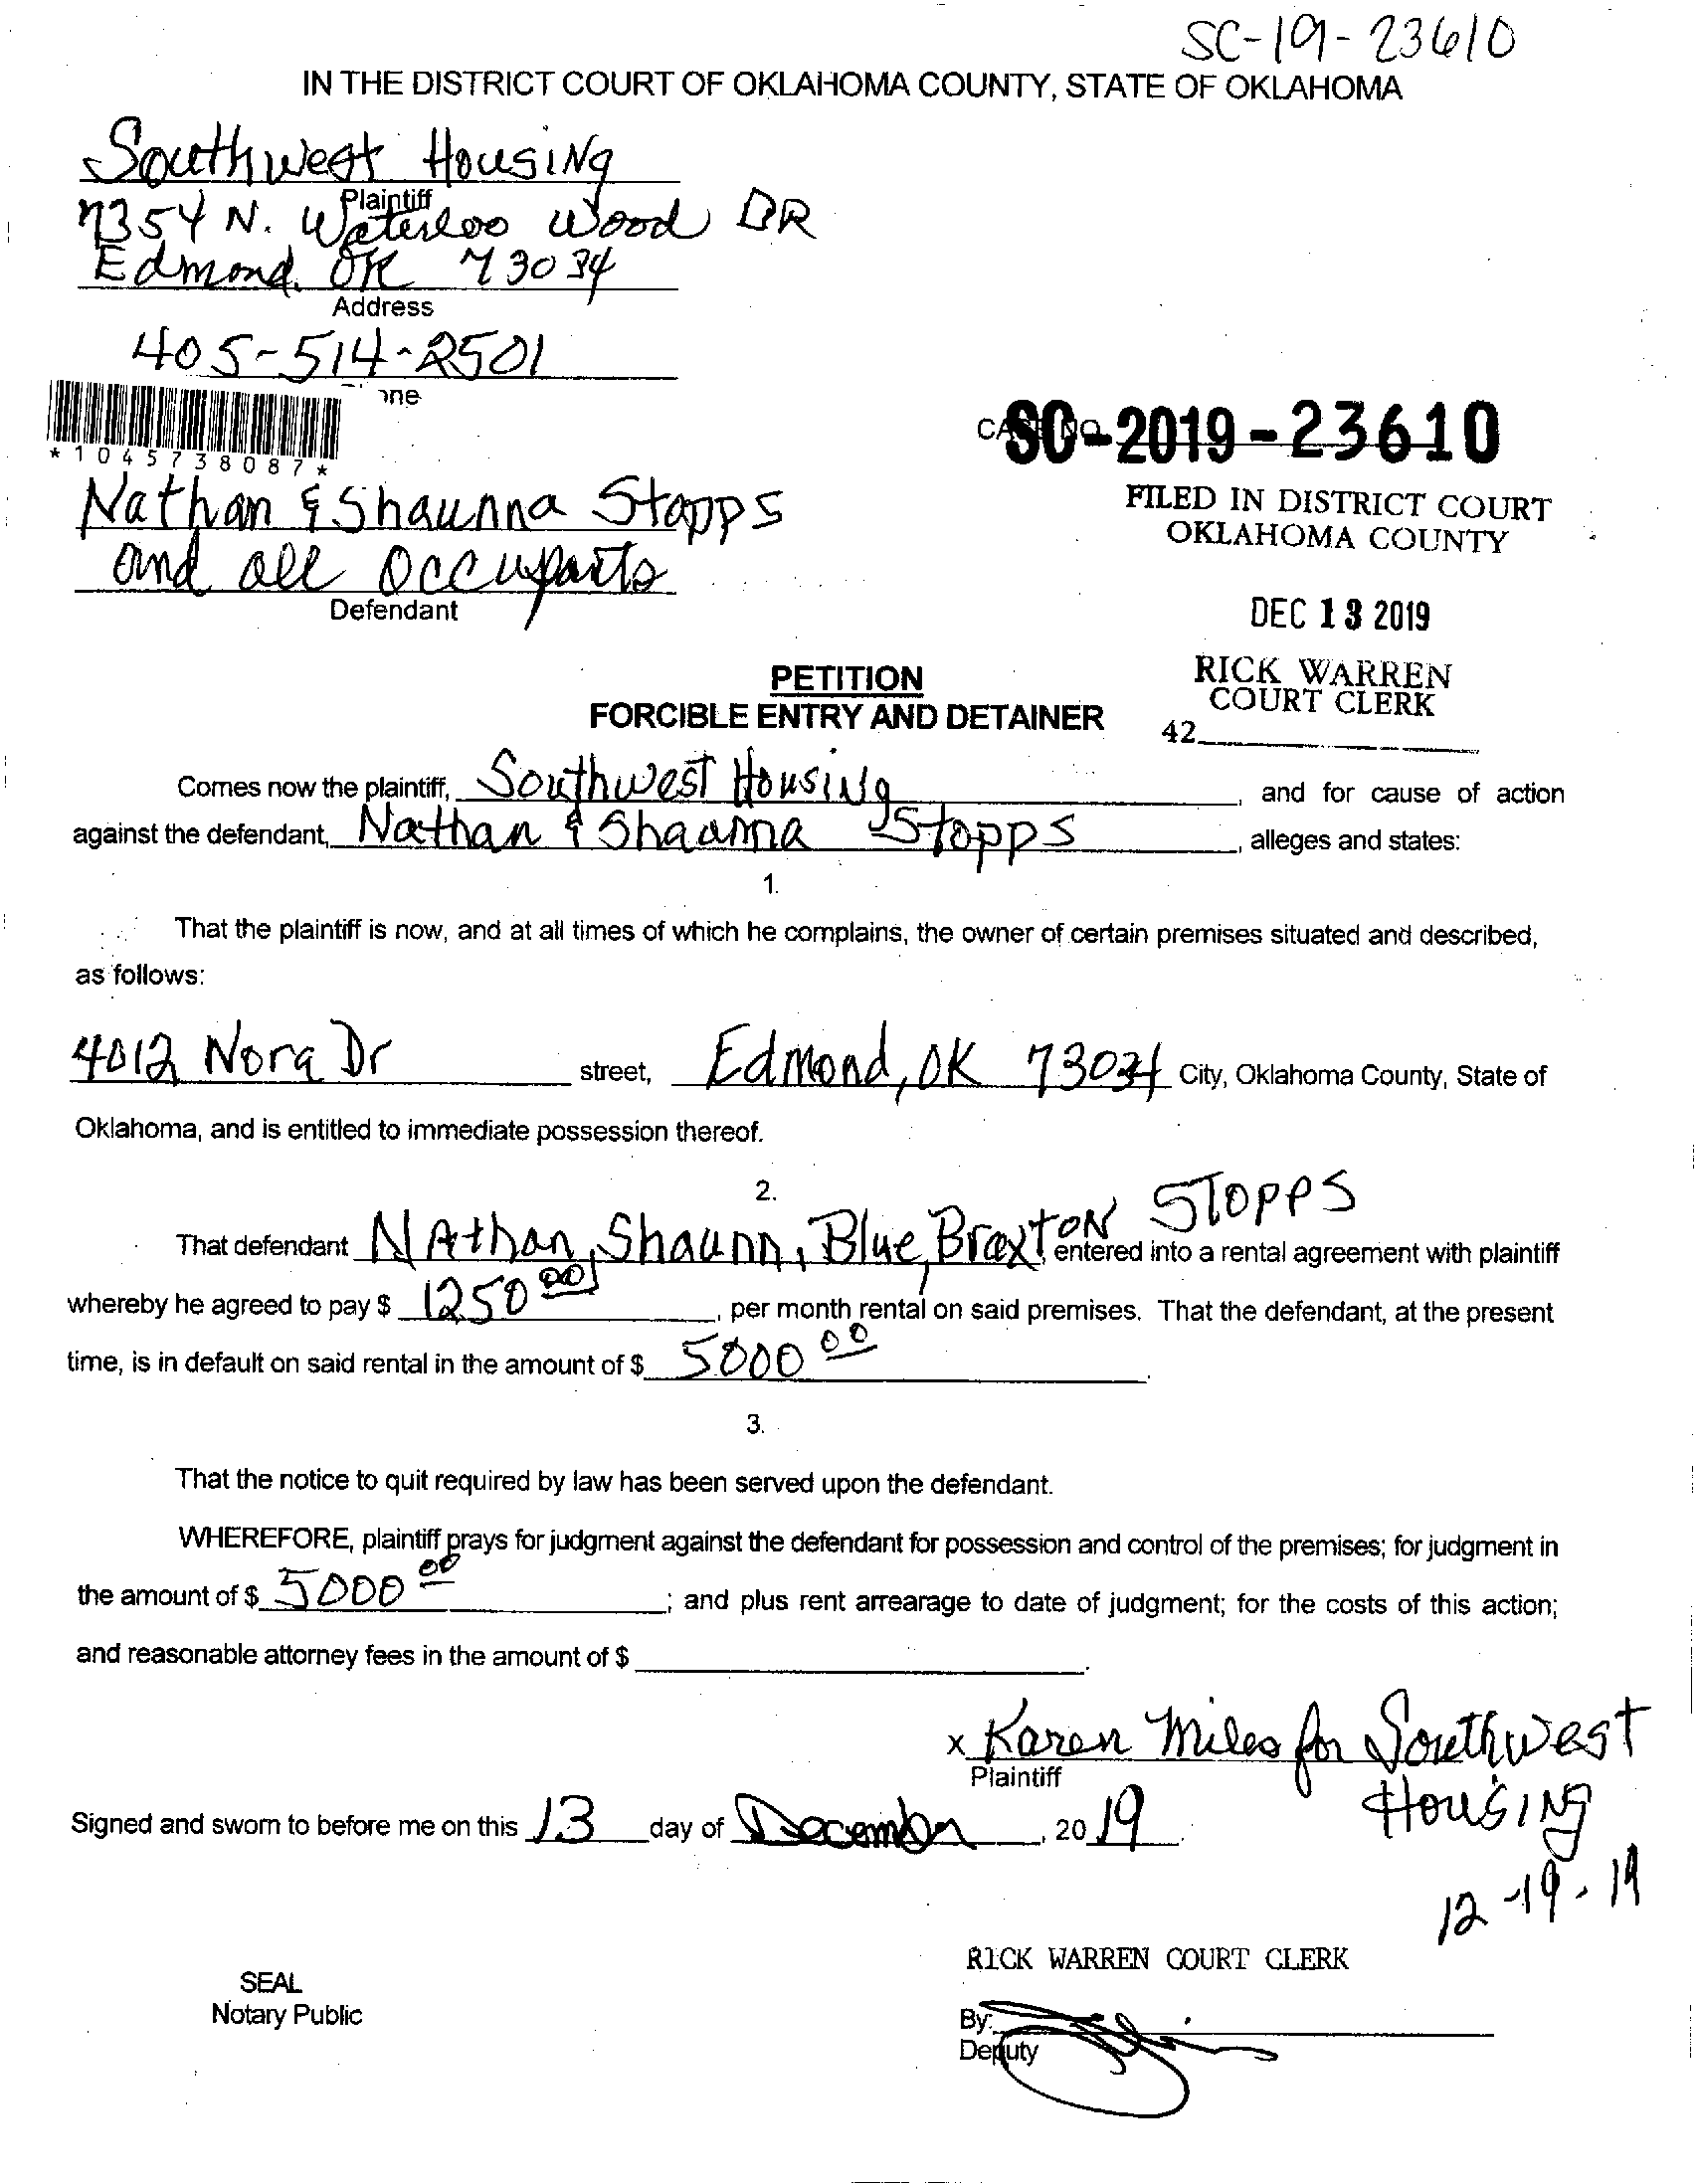 SC-19-23610
IN THE DISTRICT COURT OF OKLAHOMA COUNTY, STATE OF OKLAHOMA
Southwest Housing
Plaintiff
7354 N. Waterloo Wood DR
Edmond, OK 73034
Address
405-514-2501
one
*1045738087*
CASE NO.
SC-2019-23610
Nathan & Shaunna Stopps
and all occupants
Defendant
FILED IN DISTRICT COURT
OKLAHOMA COUNTY
DEC 13 2019
RICK WARREN
COURT CLERK
42
PETITION
FORCIBLE ENTRY AND DETAINER
Comes now the plaintiff, Southwest Housing, and for cause of action
against the defendant, Nathan & Shaunna Stopps, alleges and states:
1.
That the plaintiff is now, and at all times of which he complains, the owner of certain premises situated and described,
as follows:
4012 Nora Dr street, Edmond, OK 73034 City, Oklahoma County, State of
Oklahoma, and is entitled to immediate possession thereof.
2.
That defendant NAthan, Shaunn, Blue, BraxtoN STOPPS, entered into a rental agreement with plaintiff
whereby he agreed to pay $ 1250 00, per month rental on said premises. That the defendant, at the present
time, is in default on said rental in the amount of $ 5000 00.
3.
That the notice to quit required by law has been served upon the defendant.
WHEREFORE, plaintiff prays for judgment against the defendant for possession and control of the premises; for judgment in
the amount of $ 5000 00; and plus rent arrearage to date of judgment; for the costs of this action;
and reasonable attorney fees in the amount of $ .
x Karen Miles for Southwest
Plaintiff
Housing
Signed and sworn to before me on this 13 day of December, 20 19.
12-19-19
RICK WARREN COURT CLERK
SEAL
Notary Public
By:
Deputy